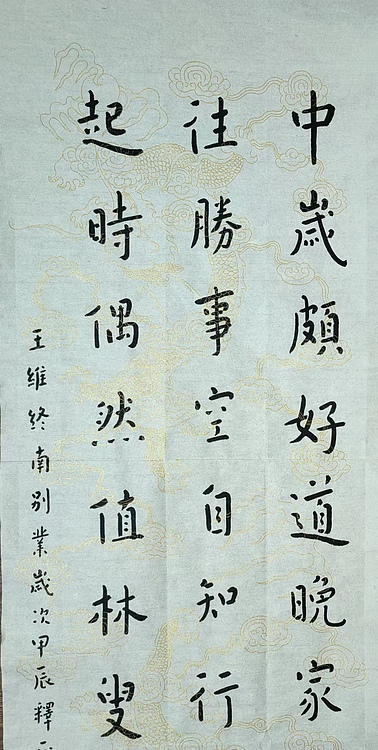 中歲頗好道晚家
往勝事空自知行
起時偶然值林叟
王維終南別業歲次甲辰釋